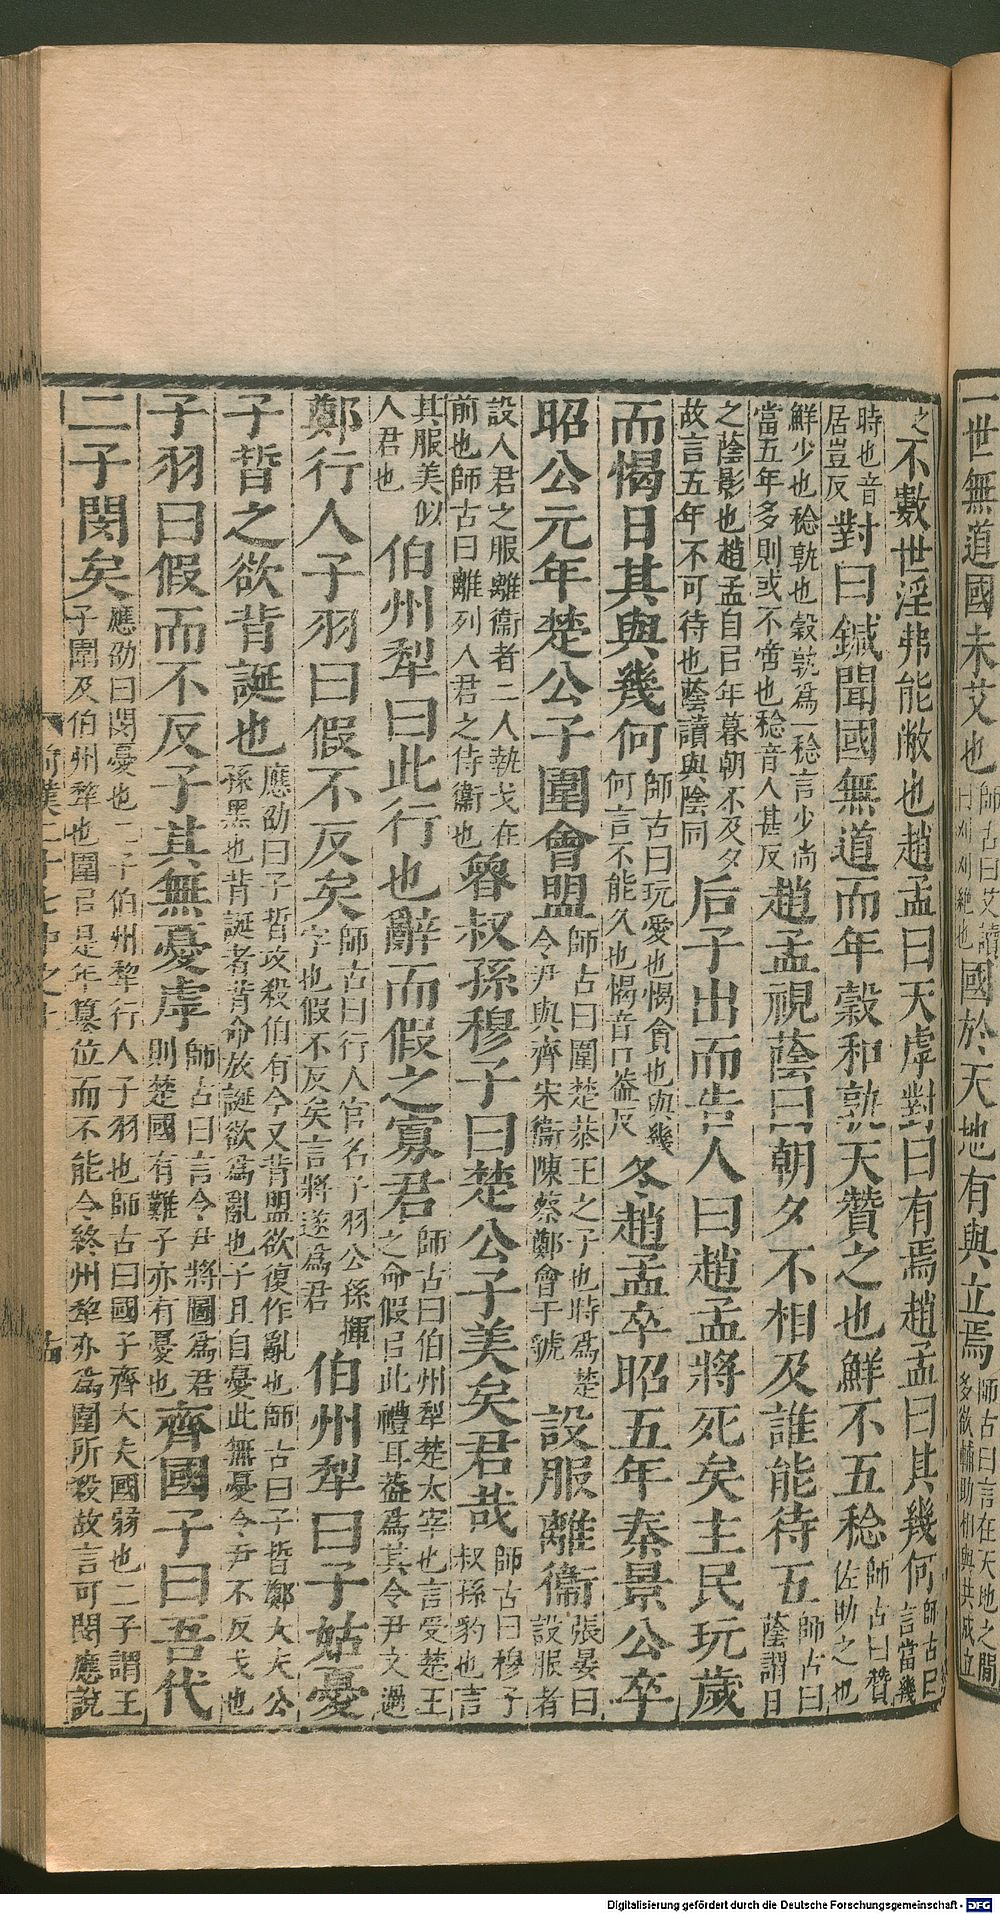 一世無道國未艾也師古曰艾讀曰刈刈絶也國於天地有與立焉師古曰言在天地之間多欲輔助相與共成立
之不數世淫弗能敝也趙孟曰天虖對曰有焉趙孟曰其幾何師古曰言當幾
時也音居豈反對曰鍼聞國無道而年穀和孰天贊之也鮮不五稔師古曰贊佐助之也
鮮少也稔孰也穀孰爲一稔言少尚當五年多則或不啻也稔音人甚反趙孟視蔭曰朝夕不相及誰能待五師古曰蔭謂日
之蔭影也趙孟自㠯年暮朝不及夕故言五年不可待也蔭讀與陰同后子出而告人曰趙孟將死矣主民玩歲
而愒日其與幾何師古曰玩愛也愒貪也與幾何言不能久也愒音口葢反冬趙孟卒昭五年秦景公卒
昭公元年楚公子圍會盟師古曰圍楚恭王之子也時爲楚令尹與齊宋衞陳蔡鄭會于虢設服離衞張晏曰設服者
設人君之服離衞者二人執戈在前也師古曰離列人君之侍衞也魯叔孫穆子曰楚公子美矣君哉師古曰穆子叔孫豹也言
其服美似人君也伯州犁曰此行也辭而假之寡君師古曰伯州犁楚太宰也言受楚王之命假㠯此禮耳葢爲其令尹文過
鄭行人子羽曰假不反矣師古曰行人官名子羽公孫揮字也假不反矣言將遂爲君伯州犁曰子姑憂
子晳之欲背誕也應劭曰子晳攻殺伯有今又背盟欲復作亂也師古曰子晳鄭大夫公孫黑也背誕者背命放誕欲爲亂也子且自憂此無憂令尹不反戈也
子羽曰假而不反子其無憂虖師古曰言令尹將圖爲君則楚國有難子亦有憂也齊國子曰吾代
二子閔矣應劭曰閔憂也二子伯州犁行人子羽也師古曰國子齊大夫國弱也二子謂王子圍及伯州犂也圍㠯是年簒位而不能令終州犁亦爲圍所殺故言可閔應說
前漢二十七中之上
Digitalisierung gefördert durch die Deutsche Forschungsgemeinschaft - DFG